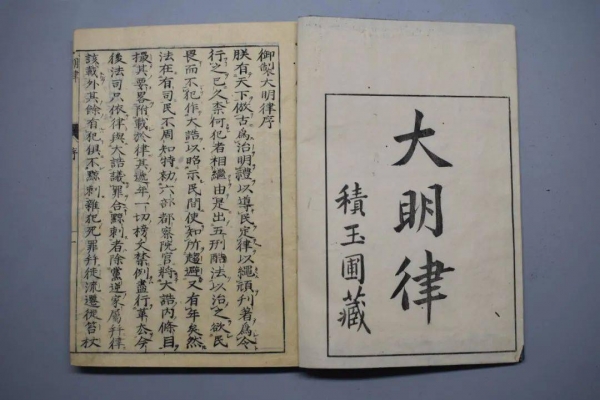 大明律
積玉圃藏
御製大明律序
朕有天下倣古爲治明禮以導民定律以繩頑刋著爲令
行之已久柰何犯者相繼由是出五刑酷法以治之欲民
畏而不犯作大誥以昭示民間使知所趨避又有年矣然
法在有司民不周知特勑六部都察院官將大誥內條目
撮其要畧附載於律其遞年一切榜文禁例盡行革去今
後法司只依律與大誥議罪合黥刺者除黨逆家屬幷律
該載外其餘有犯俱不黥刺雜犯死罪幷徒流遷徙笞杖
明律 序